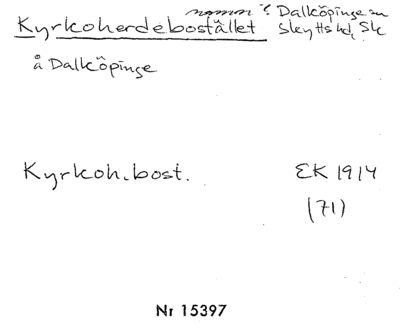 namn? Dalköpinge sn
Kyrkoherdebostället Skytts hd, Sk
å Dalköpinge
Kyrkoh.bost. EK 1914
(71)
Nr 15397